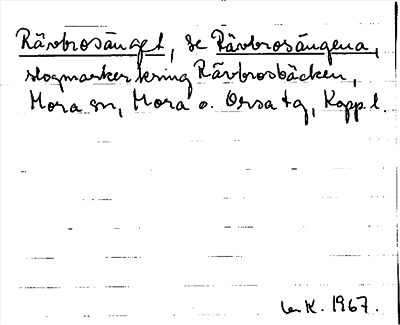 Rävbrosänget, se Rävbrosängena,
slogmarker kring Rävbrosbäcken,
Mora sn, Mora o. Orsa tg, Kopp. l.
K. 1967.